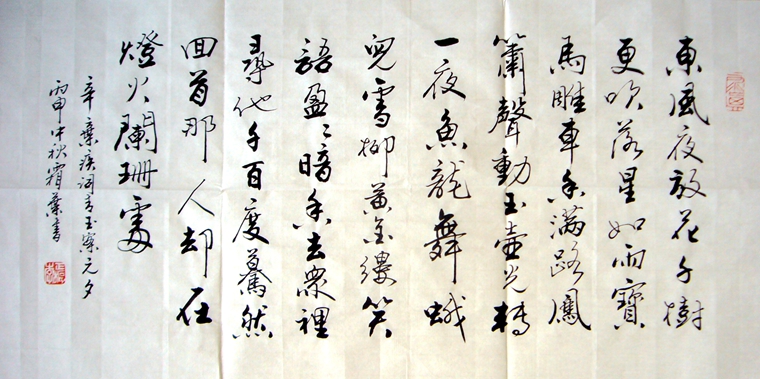 東風夜放花千樹
更吹落星如雨寶
馬雕車香滿路鳳
簫聲動玉壺光轉
一夜魚龍舞蛾
兒雪柳黃金縷笑
語盈〻暗香去衆裡
尋他千百度驀然
回首那人却在
燈火闌珊處
辛棄疾詞青玉案元夕
丙申中秋霜葉書